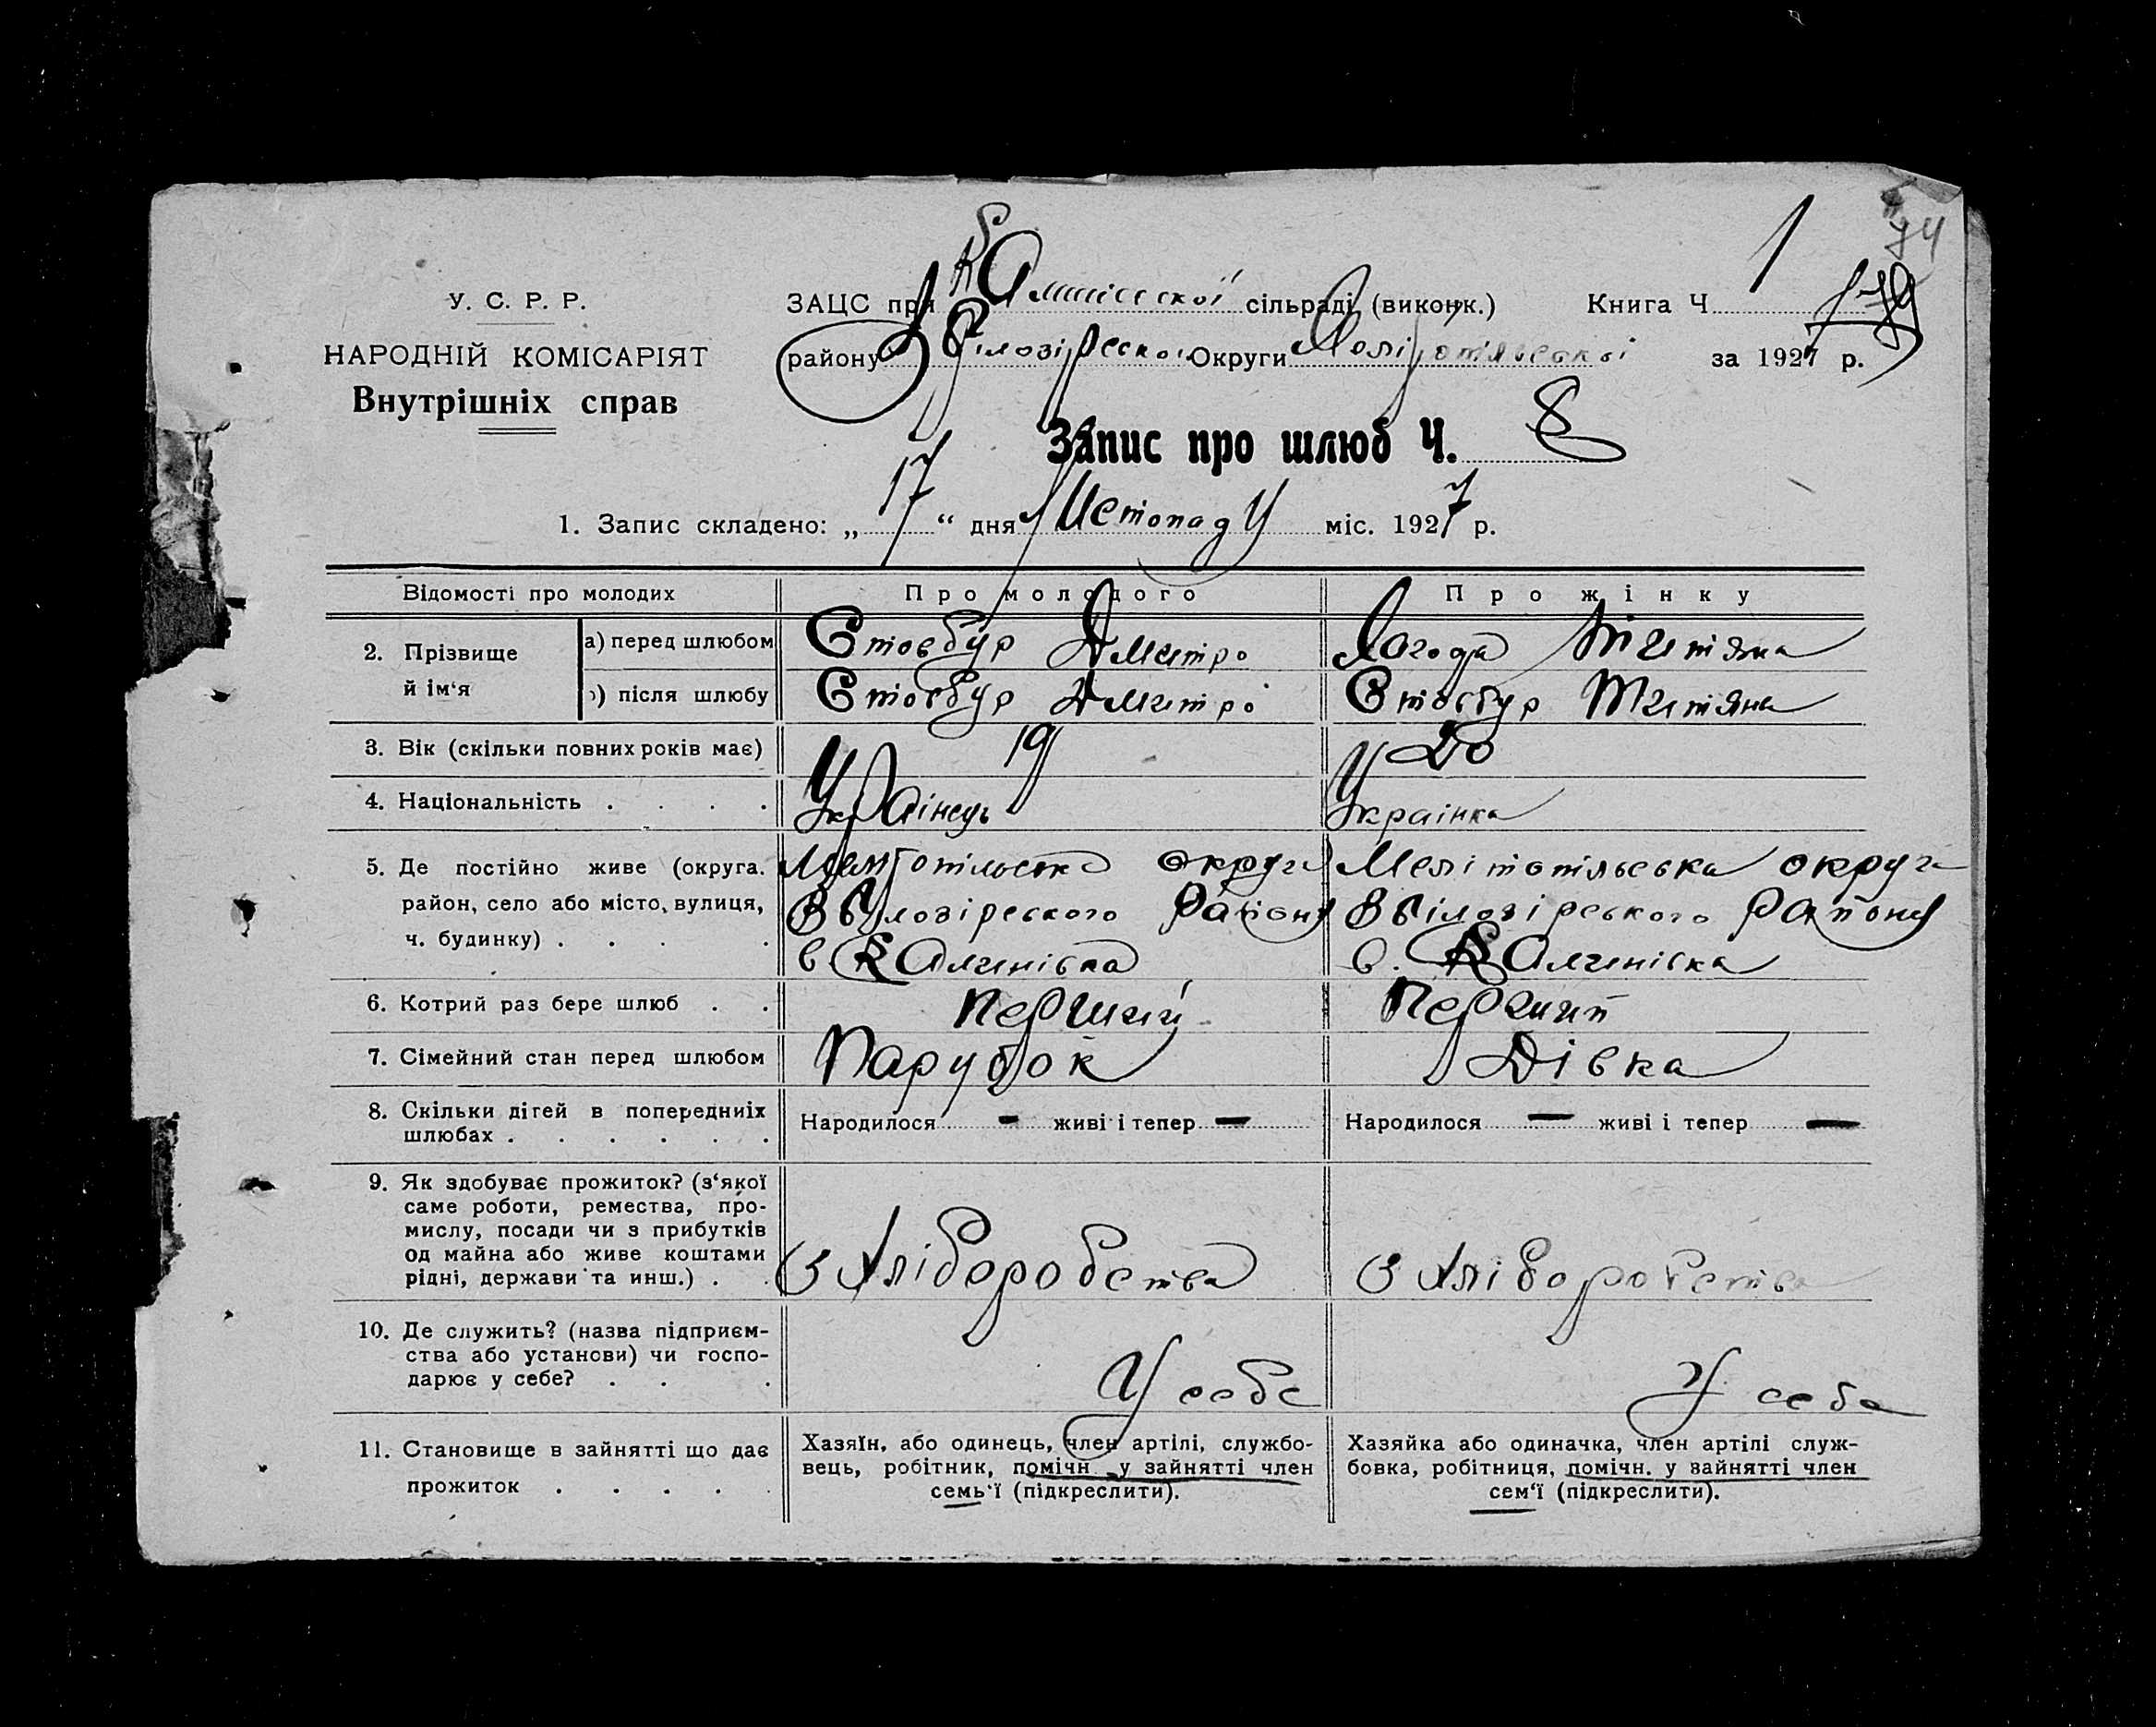 74
1
179
У. С. Р. Р.
НАРОДНІЙ КОМІСАРІЯТ
Внутрішніх справ
ЗАЦС при сільраді (виконк.) Книга Ч.
району Білозірської Округи Меліпотільської за 1927 р.
Запис про шлюб Ч. 8
1. Запис складено: „17“ дня Листопаду міс. 1927 р.
Відомості про молодих Про молодого Про жінку
2. Прізвище й ім'я
а) перед шлюбом Стовбур Дмитро Лагода Титяна
б) після шлюбу Стовбур Дмитро Стовбур Титяна
3. Вік (скільки повних років має) 19 20
4. Національність . . . . Українець Украінка
5. Де постійно живе (округа. Мелітопільська округа Мелітопільська округа
район, село або місто, вулиця, Білозірського Району Білозірського Району
ч. будинку) . . . . с. Калинівка с. Калинівка
6. Котрий раз бере шлюб . . Перший Перший
7. Сімейний стан перед шлюбом Парубок Дівка
8. Скільки дітей в попередниіх Народилося — живі і тепер — Народилося — живі і тепер —
шлюбах . . . . . .
9. Як здобуває прожиток? (з'якої
саме роботи, ремества, про-
мислу, посади чи з прибутків
од майна або живе коштами
рідні, держави та инш.) . . З Хліборобства З Хліборобства
10. Де служить? (назва підприєм-
ства або установи) чи госпо-
дарює у себе? . . . У себе У себе
11. Становище в зайнятті що дає
прожиток . . . . .
Хазяїн, або одинець, член артілі, службо-
вець, робітник, помічн. у зайнятті член
семь'ї (підкреслити).
Хазяйка або одиначка, член артілі служ-
бовка, робітниця, помічн. у зайнятті член
сем'ї (підкреслити).